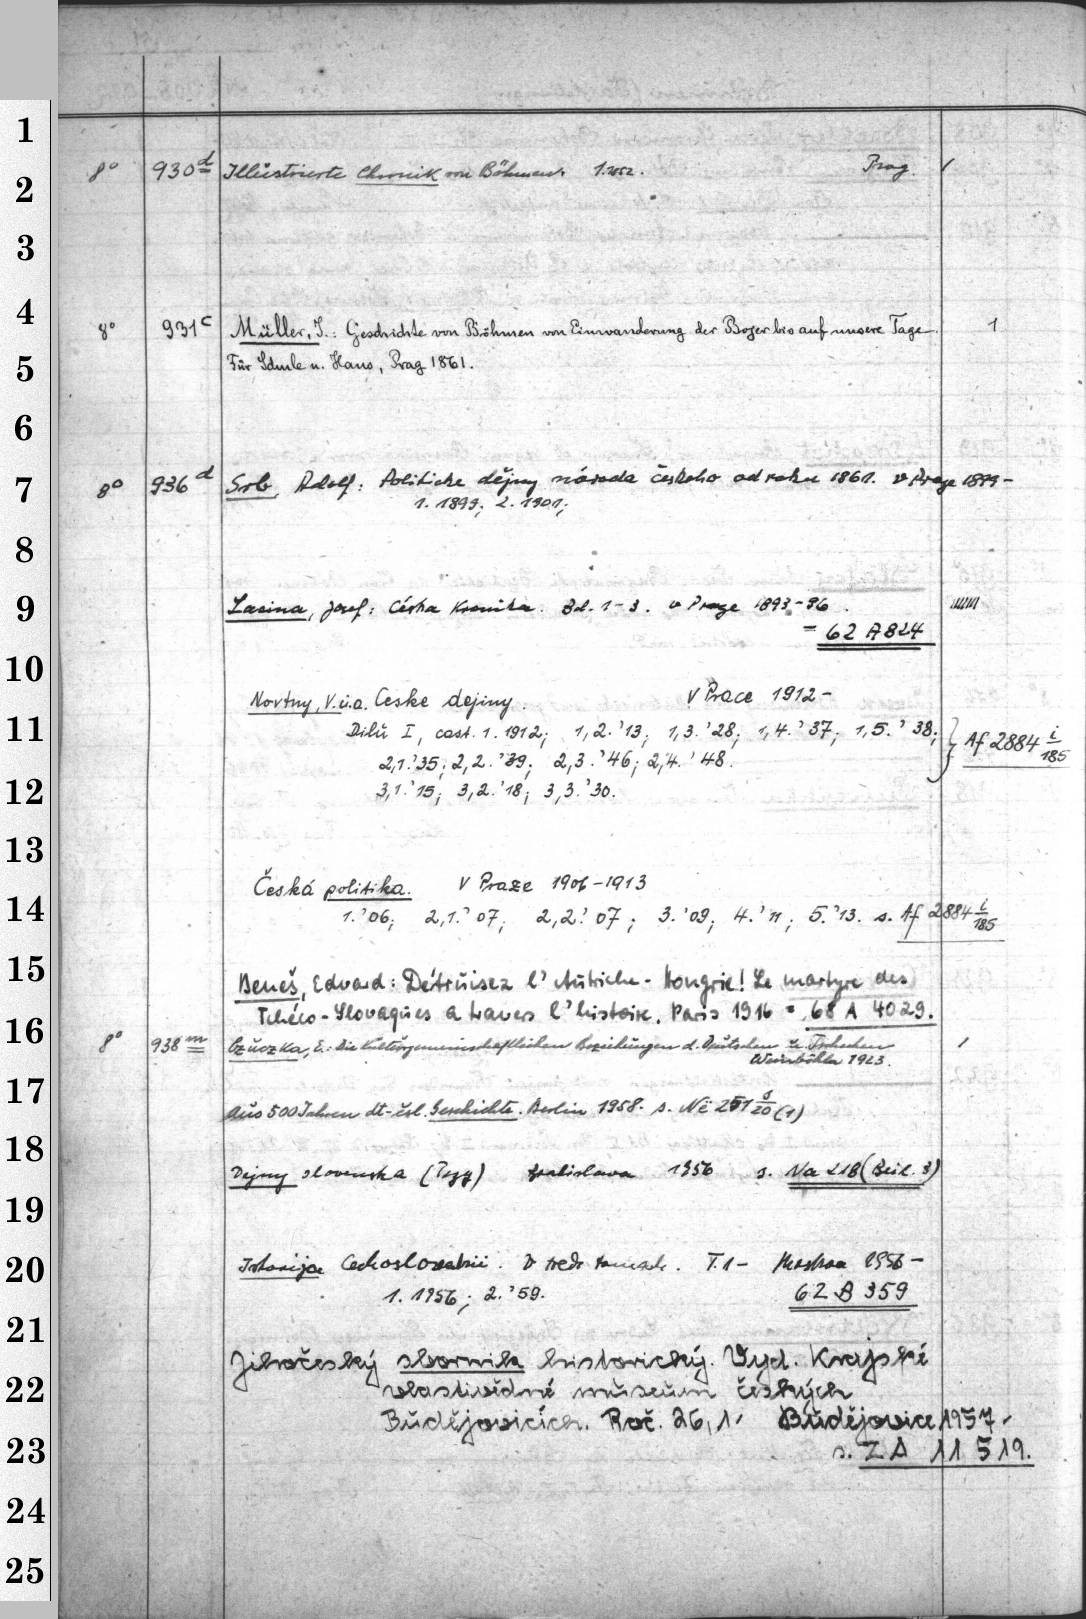 1
8° 930 d Illustrierte Chronik von Böhmens 1. 1852. Prag. 1
2
3
4
8° 931 c Müller, J.: Geschichte von Böhmen von Einwanderung der Bojer bis auf unsere Tage. 1
5 Für Schule u. Haus, Prag 1861.
6
7 8° 936 d Srb, Adolf: Politicke dějiny národa českeho od roku 1861. v Praze 1899-
1. 1899; 2. 1901;
8
9 Lacina, Josef: Céska Kronika. Bd. 1-3. v Praze 1893-96.
= 62 A 824
10
Novtny, V. u.a. Ceske dejiny. V Prace 1912-
11 Dilů I, cast. 1. 1912; 1,2.'13; 1,3.'28; 1,4.'37; 1,5.'38; } Af 2884 i/185
2,1.'35; 2,2.'39; 2,3.'46; 2,4.'48.
12 3,1.'15; 3,2.'18; 3,3.'30.
13
Česká politika. V Praze 1906-1913
14 1.'06; 2,1.'07; 2,2.'07; 3.'09; 4.'11; 5.'13. s. Af 2884 i/185
15 Beneš, Edvard: Détruisez l'Autriche-Hongrie! Le martyre des
16 Tchéco-Slovaques a travers l'histoire. Paris 1916 = 68 A 4029.
8° 938 m Czuczka, E.: Die kulturgemeinschaftlichen Beziehungen d. Deutschen u. Tschechen 1
Weinböhla 1923.
17 Aus 500 Jahren dt-čsl. Geschichte. Berlin 1958. s. Në 251 (1)
18 Dejny slovenska (Tezy) Bratislava 1956 s. Na 218 (Beil. 3)
19
20 Istorija Cechoslovakii. T. 1- Moskva 1956-
1. 1956; 2.'59. 62 B 359
21 Jihočeský sbornik historický. Vyd. Krajské
22 vlastivědné museum českých
Budějovicích. Roč. 26,1- Budějovice 1957-
23 s. ZA 11 519.
24
25